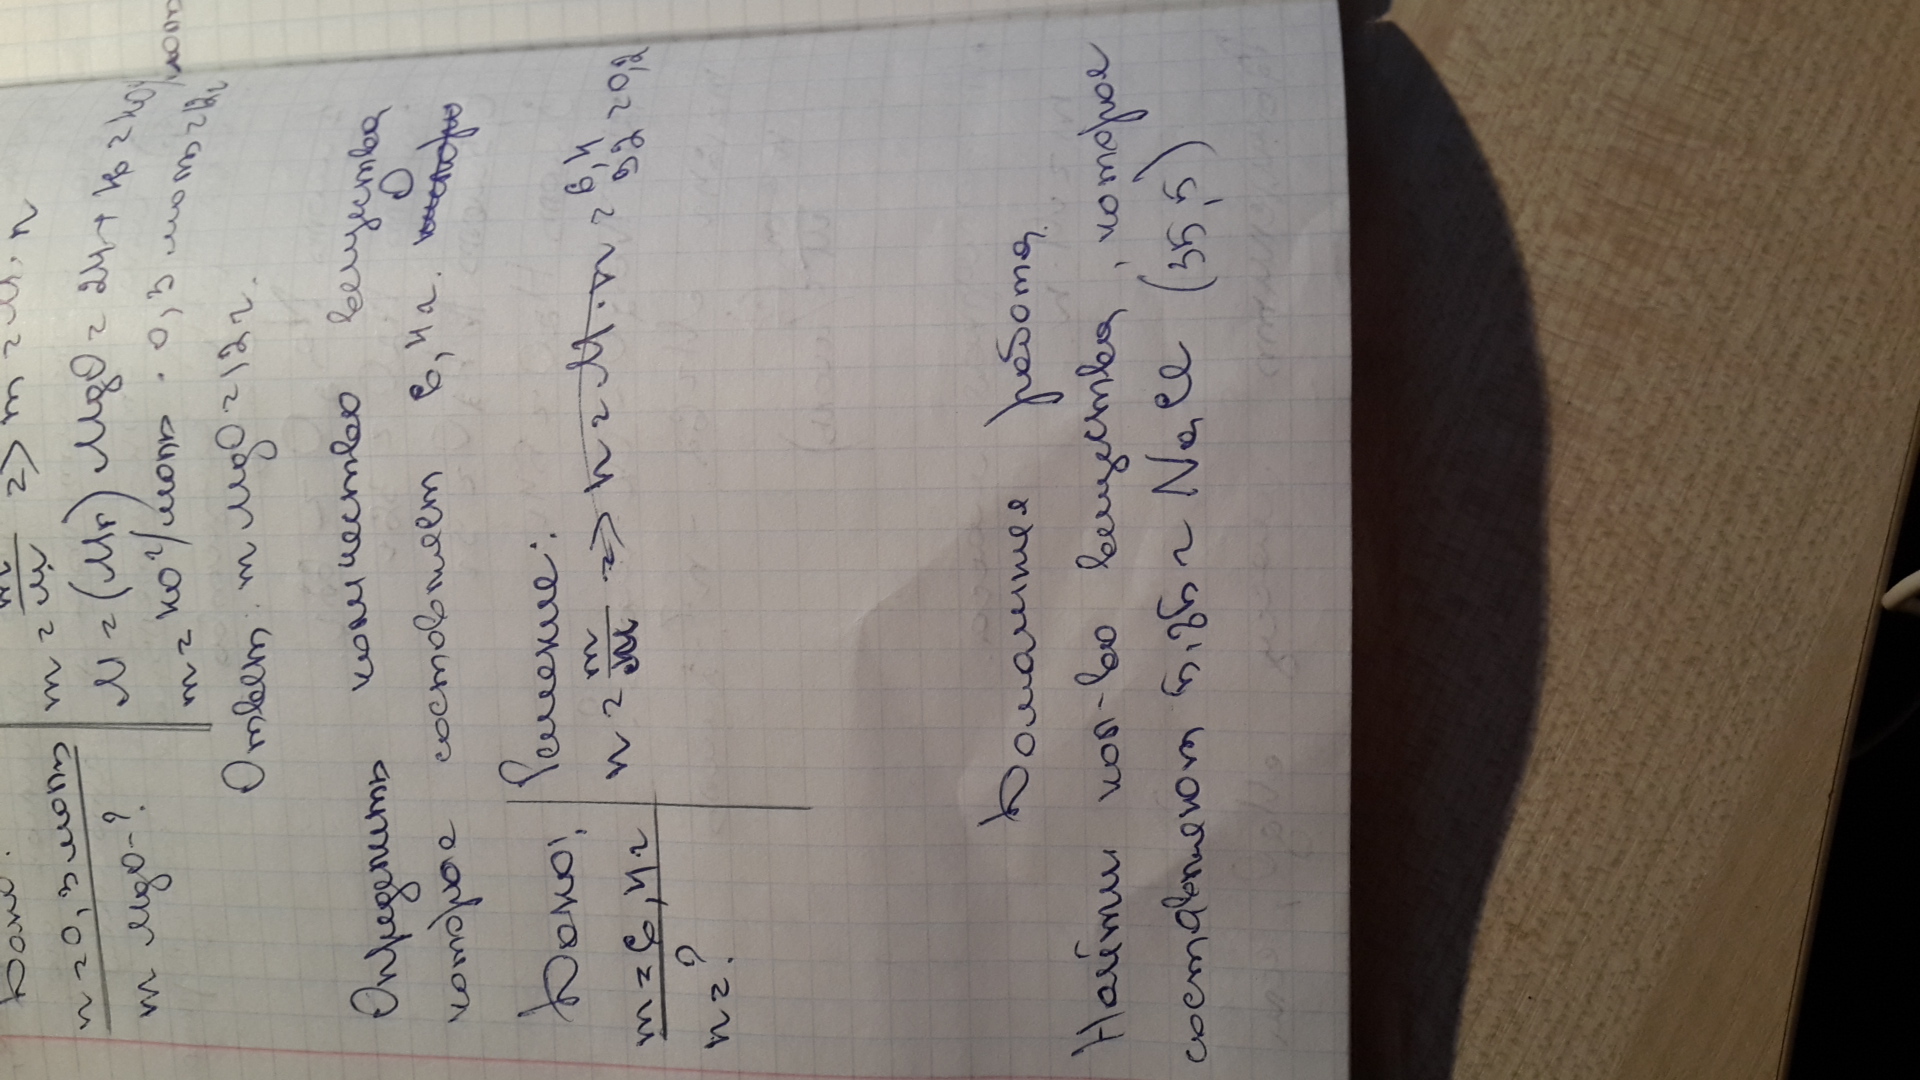 Дано:
n = 0,3 моль
m MgO - ?
n = m/M => m = M · n
M = (Mr) MgO = 24 + 16 = 40 г/моль
m = 40 г/моль · 0,3 моль = 12 г
Ответ: m MgO = 12 г.
Определить количество вещества
которое составляет 6,4 г. O
Дано:
m = 6,4 г
n = ?
Решение:
n = m/M => n = M · m = 6,4/32 = 0,2
Домашняя работа.
Найти кол-во вещества, которое
составляют г NaCl (55,5)